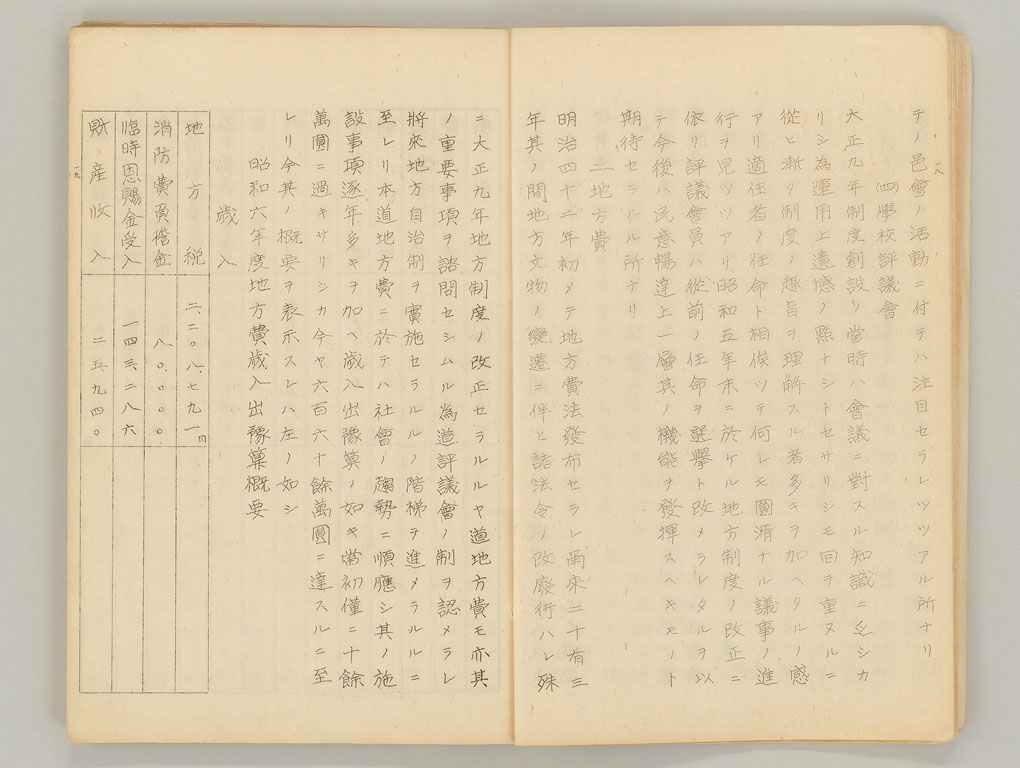 一八
テノ邑會ノ活動ニ付テハ注目セラレツツアル所ナリ
(四)學校評議會
大正九年制度創設ノ當時ハ會議ニ對スル知識ニ乏シカ
リシ為運用上遺憾ノ點ナシトセサリシモ回ヲ重ヌルニ
從ヒ漸ク制度ノ趣旨ヲ理解スル者多キヲ加ヘタルノ感
アリ適任者ノ任命ト相俟ツテ何レモ圓滑ナル議事ノ進
行ヲ見ツツアリ昭和五年末ニ於ケル地方制度ノ改正ニ
依リ評議會員ハ從前ノ任命ヲ選擧ト改メラレタルヲ以
テ今後ハ民意暢達上一層其ノ機能ヲ發揮スヘキモノト
期待セラルル所ナリ
二地方費
明治四十二年初メテ地方費法發布セラレ爾來二十有三
年其ノ間地方文物ノ變遷ニ伴ヒ諸法令ノ改廢行ハレ殊
ニ大正九年地方制度ノ改正セラルルヤ道地方費モ亦其
ノ重要事項ヲ諮問セシムル為道評議會ノ制ヲ認メラレ
將來地方自治制ヲ實施セラルルノ階梯ヲ進メラルルニ
至レリ本道地方費ニ於テハ社會ノ趨勢ニ順應シ其ノ施
設事項逐年多キヲ加ヘ歲入出豫算ノ如キ當初僅ニ十餘
萬圓ニ過キサリシカ今ヤ六百六十餘萬圓ニ達スルニ至
レリ今其ノ概要ヲ表示スレハ左ノ如シ
昭和六年度地方費歲入出豫算概要
歲入
地方稅 二、二〇八、七九一円
消防費寄稽金 八〇、〇〇〇
臨時恩賜金受入 一四三、二八六
財產收入 二五、九四〇
一九